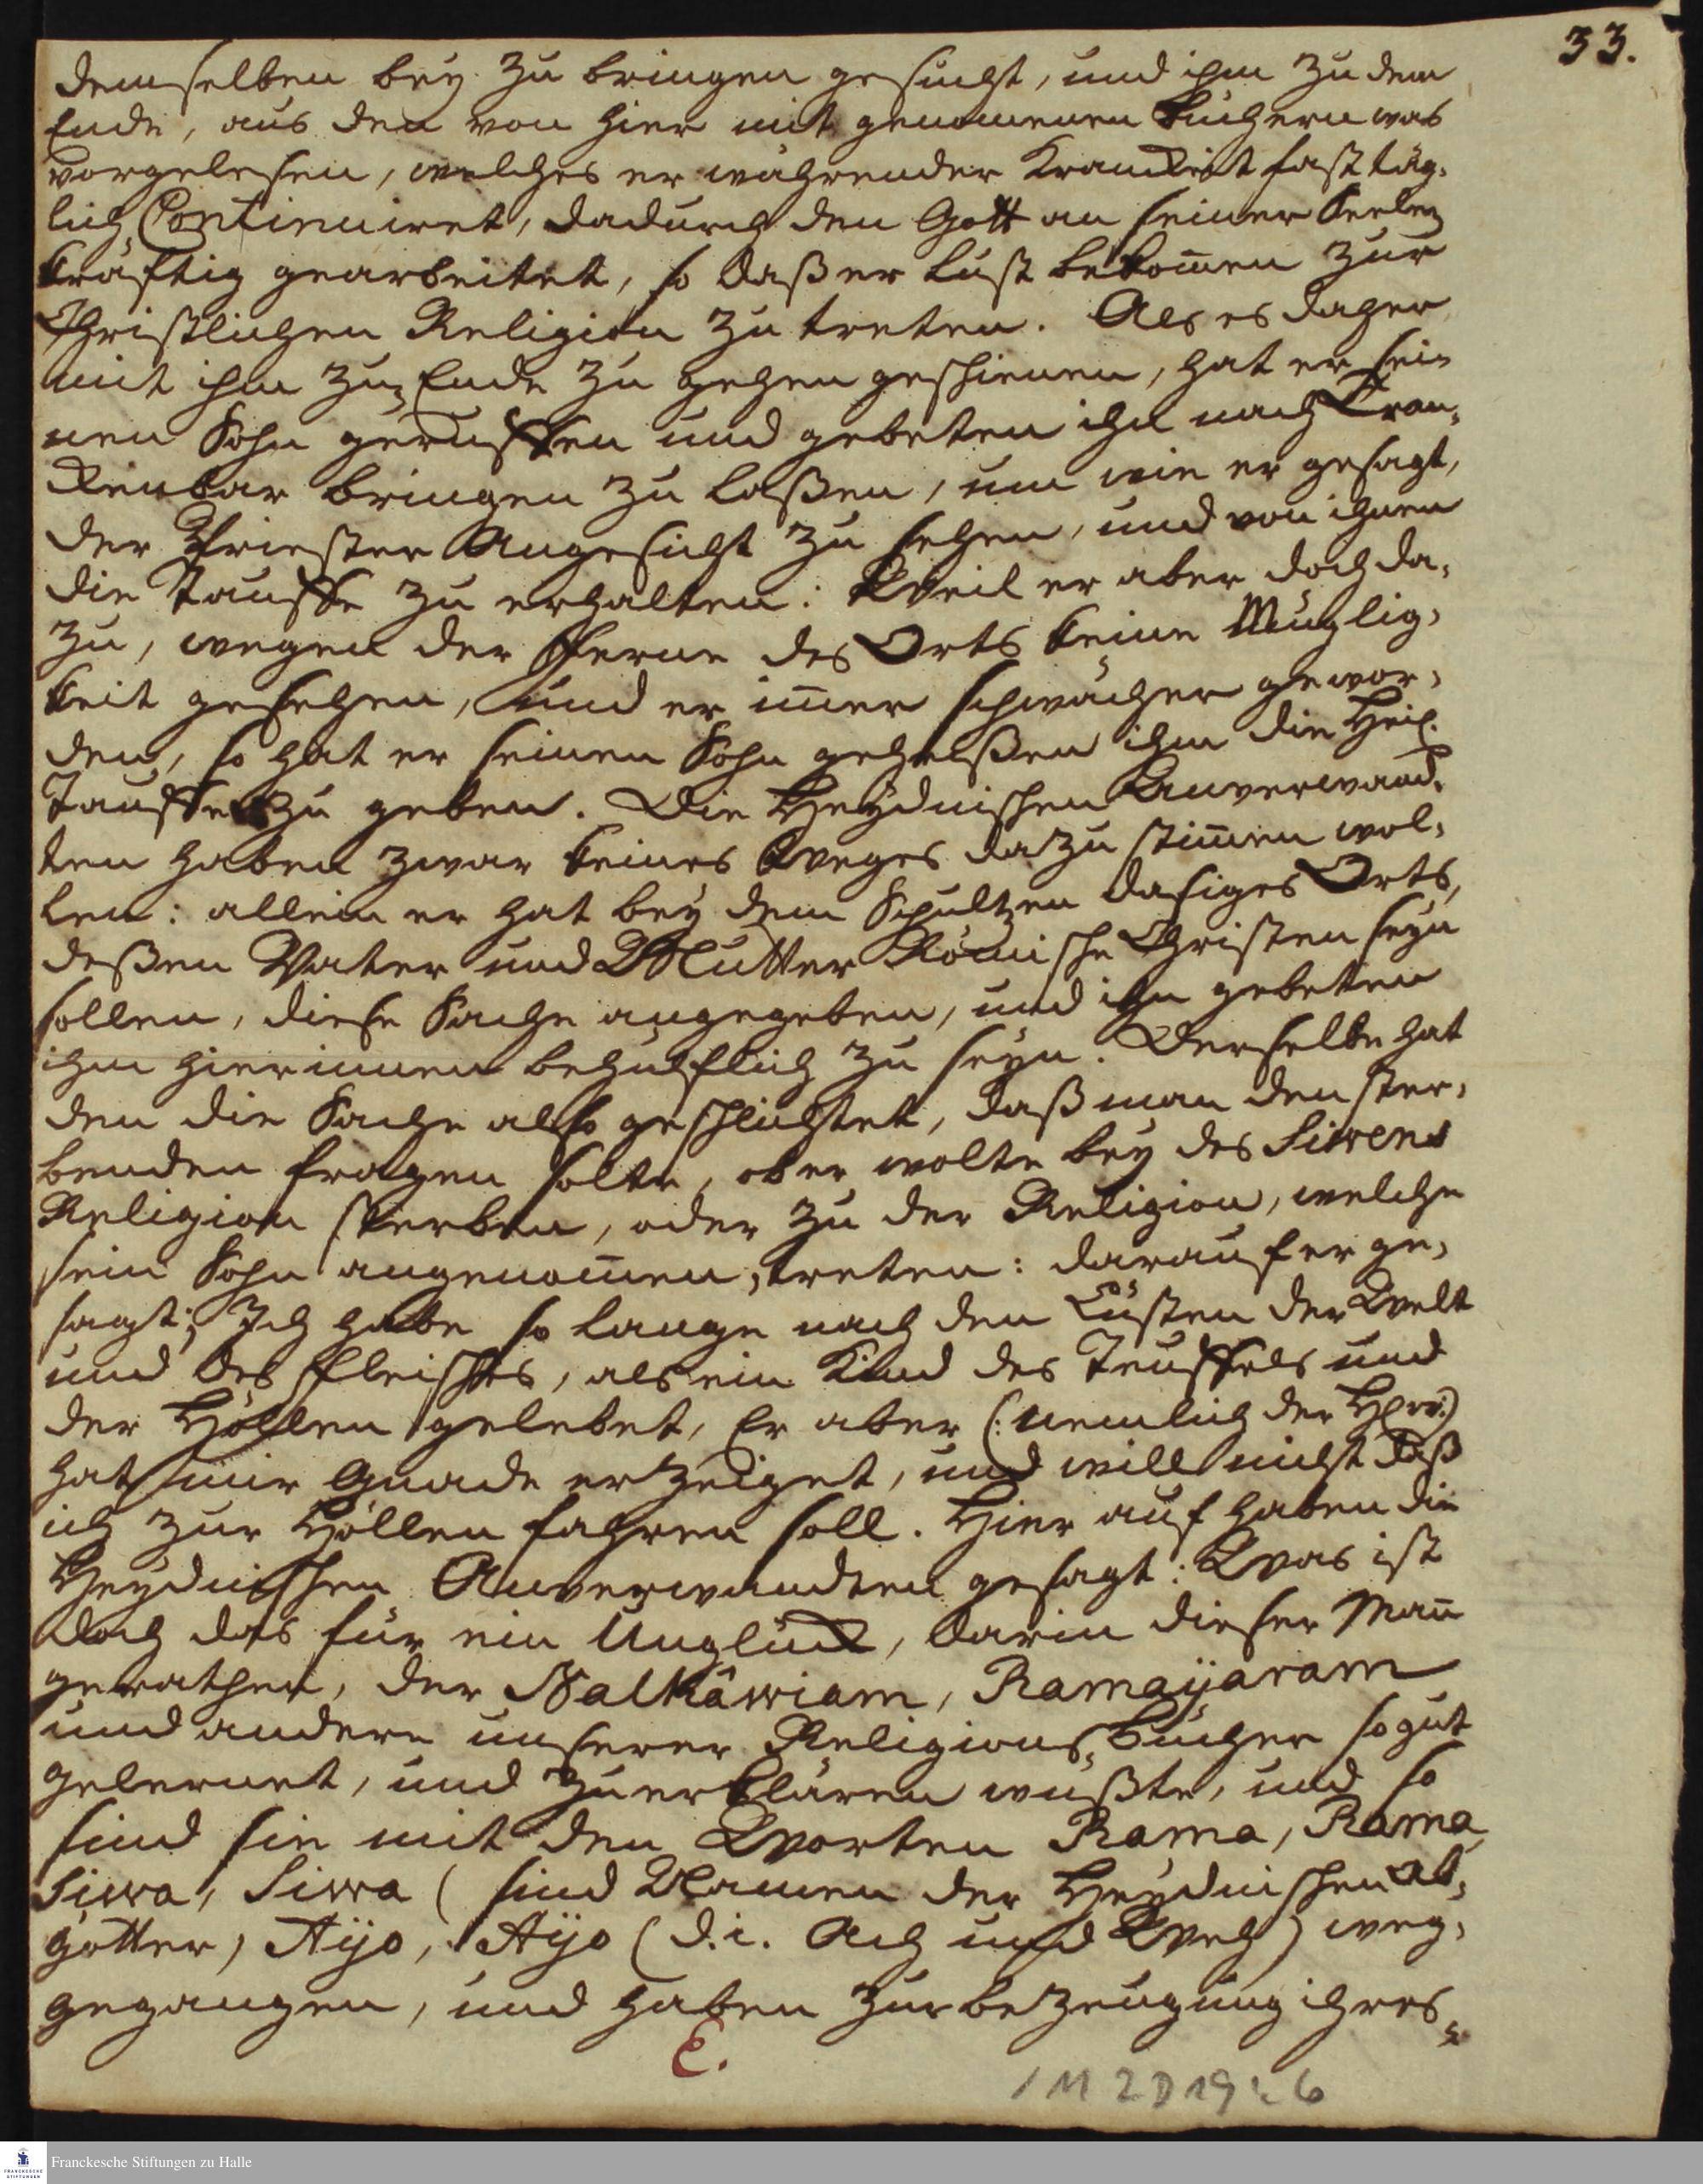 33.
demselben bey zu bringen gesucht, und ihm zu dem
Ende, aus den von hier mit genommenen Büchern was
vorgelesen, welches er währender Kranckheit fast täg-
lich Continuiret, dadurch den Gott an seiner Seelen
kräftig gearbeitet, so daß er Lust bekom̄en zur
Christlichen Religion zu treten. Als es daher
mit ihm zu Ende zu gehen geschienen, hat er sei-
nen Sohn geruffen und gebeten ihn nach Tran-
kenbar bringen zu laßen, um wie er gesagt,
der Priester Angesicht zu sehen, und von ihnen
die Tauffe zu erhalten: Weil er aber doch da-
zu, wegen der Ferne des Orts keine Müglig-
keit gesehen, und er im̄er schwächer gewor-
den, so hat er seinen Sohn geheißen ihm die Heil.
Tauffe zu geben. Die Heydnischen Anverwand-
ten haben zwar keines Weges dazu stim̄en wol-
len: allein er hat bey dem Schultzen dasiges Orts,
deßen Vater und Mutter Römische Christen seyn
sollen, diese Sache angegeben, und ihn gebeten
ihm hierinnen behülflich zu seyn. Derselbe hat
den die Sache also geschlichtet, daß man den ster-
benden fragen solte, ob er wolte bey des Siwens
Religion sterben, oder zu der Religion, welche
sein Sohn angenom̄en, treten: darauf er ge-
sagt; Ich habe so lange nach den Lüsten der Welt
und des Fleisches, als ein Kind des Teuffels und
der Höllen gelebet, Er aber (: nemlich der Herr:)
hat mir Gnade erzeiget, und will nicht daß
ich zur Höllen fahren soll. Hier auf haben die
Heydnischen Anverwandten gesagt: Was ist
doch das für ein Unglück, darin dieser Man̄
gerathen, der Nalkâwiam, Ramayaram
und andere unserer Religions-Bücher so gut
gelernet, und zu erklären wußte, und so
sind sie mit den Worten Rama, Rama
Siwa, Siwa ( sind Namen der Heydnischen Ab-
götter) Aÿo, Aÿo (d. i. Ach und Weh) weg-
gegangen, und haben zur bezeugung ihres
E.
1 M 2 D 19 : 6
Franckesche Stiftungen zu Halle
FRANCKESCHE
STIFTUNGEN